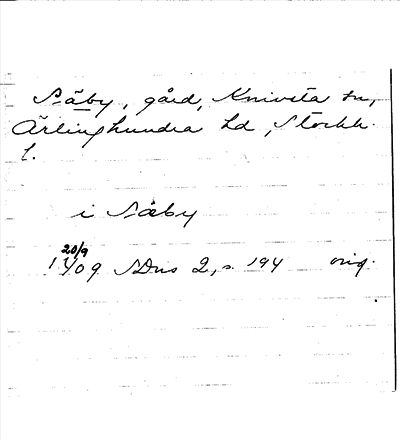 Säby, gård, Knivsta sn,
Ärlinghundra hd, Stockh.
l.
i Säby
20/9
1409 SDns 2, s. 194 orig.